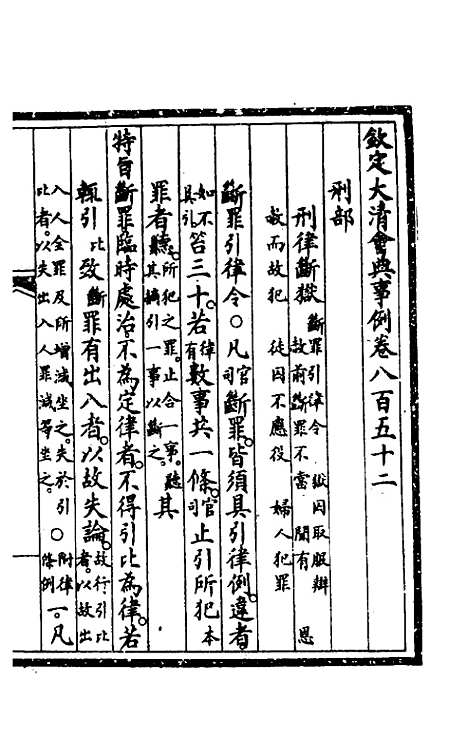 欽定大清會典事例卷八百五十二
刑部
刑律斷獄 斷罪引律令 獄囚取服辯
故前斷罪不當 聞有 恩
故而故犯 徒囚不應役 婦人犯罪
斷罪引律令○凡官司斷罪。皆須具引律例。違者
如不具引笞三十。若律有數事共一條。官司止引所犯本
罪者聽。所犯之罪。止合一事。聽其摘引一事以斷之。其
特旨斷罪臨時處治。不為定律者。不得引比為律。若
輒引比致斷罪有出入者。以故失論。故行引比者。以故出
入人全罪及所增減坐之。失於引比者。以失出入人罪減等坐之。○附律條例一。凡